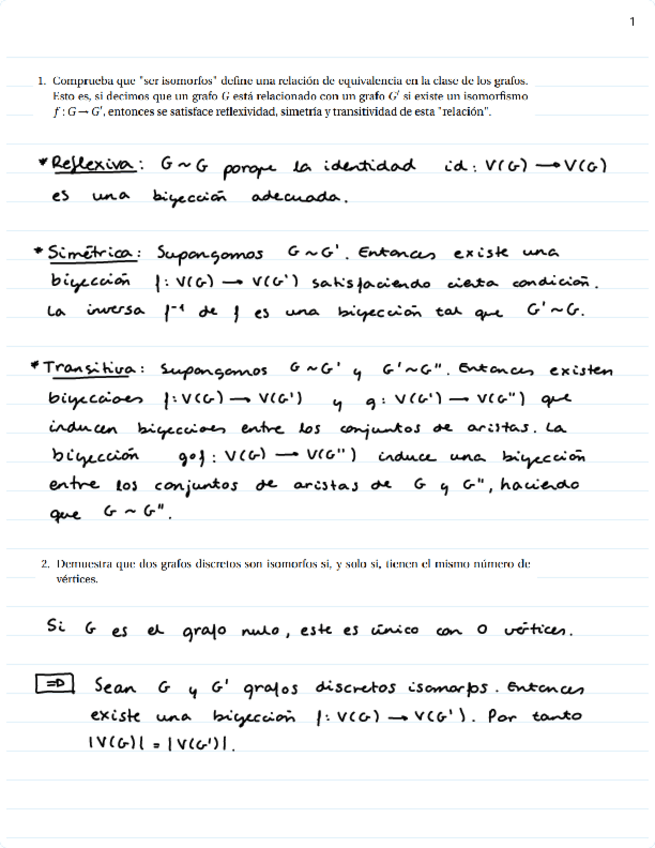 1
1. Comprueba que "ser isomorfos" define una relación de equivalencia en la clase de los grafos.
Esto es, si decimos que un grafo G está relacionado con un grafo G' si existe un isomorfismo
f : G → G', entonces se satisface reflexividad, simetría y transitividad de esta "relación".
* Reflexiva: G ~ G porque la identidad id: V(G) → V(G)
es una biyección adecuada.
* Simétrica: Supongamos G ~ G'. Entonces existe una
biyección f: V(G) → V(G') satisfaciendo cierta condición.
La inversa f⁻¹ de f es una biyección tal que G' ~ G.
* Transitiva: Supongamos G ~ G' y G' ~ G''. Entonces existen
biyecciones f: V(G) → V(G') y g: V(G') → V(G'') que
inducen biyecciones entre los conjuntos de aristas. La
biyección g∘f: V(G) → V(G'') induce una biyección
entre los conjuntos de aristas de G y G'', haciendo
que G ~ G''.
2. Demuestra que dos grafos discretos son isomorfos si, y solo si, tienen el mismo número de
vértices.
Si G es el grafo nulo, este es único con 0 vértices.
⇒ Sean G y G' grafos discretos isomorfos. Entonces
existe una biyección f: V(G) → V(G'). Por tanto
|V(G)| = |V(G')|.